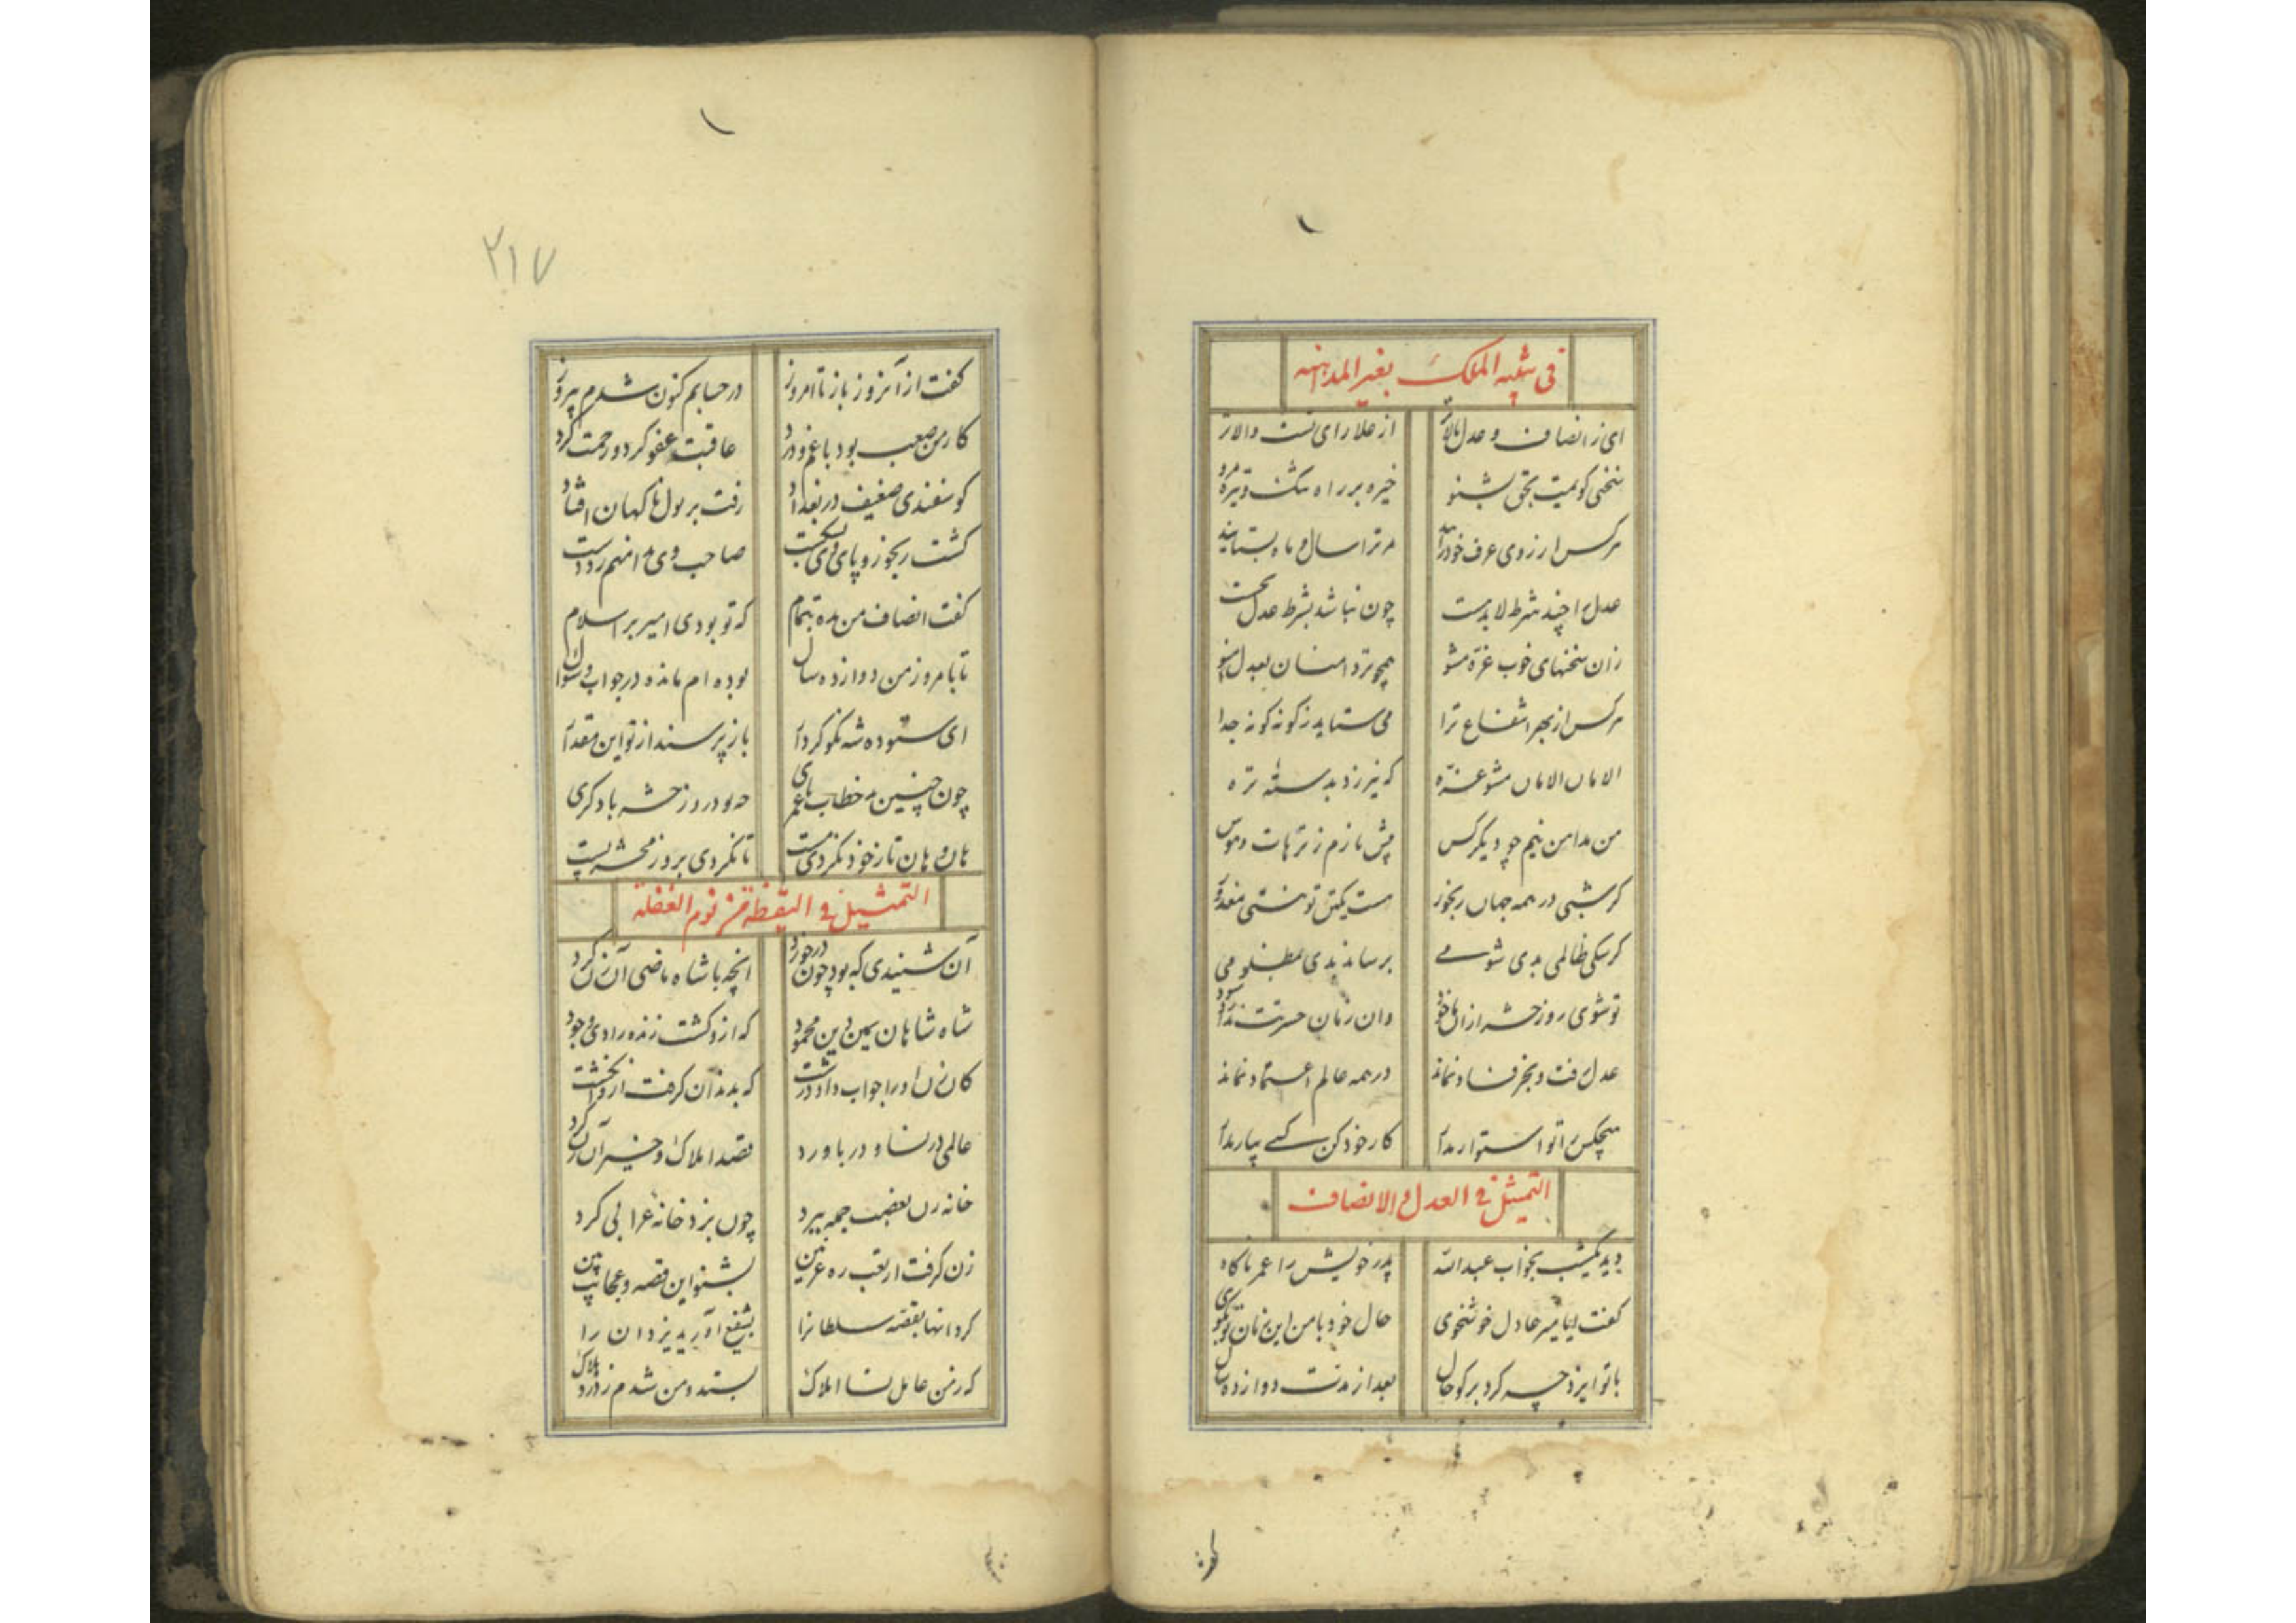 فی تنبیه الملک بغیر المداهنه
ای ز انصاف و عدل بالاتر از علا رای تست والاتر
سخنی کویمت بحق بشنو خیره بر راه شک و تیره مرو
هرکس ار زوی عرف خود را مر ترا سال و ماه بستایند
عدل را چند شرط لابدست چون نباشد بشرط عدل
زان سخنهای خوب غره مشو همچو تردامنان بعدل
هرکس از بهر انتفاع ترا می ستاید ز کونه کونه جدا
الامان الامان مشو غره که نیرزد بدسته تره
من مداهن نیم چو دیکر کس پیش نازم ز ترهات و هوس
کر شبی در همه جهان رنجور هست یکتن تو نیستی معذور
کر سکی ظالمی بدی شومی برساند بدی بمظلومی
تو شوی روز حشر ازان ماخوذ وان زمان حسرتت ندارد سود
عدل رفت و بجز فساد نماند در همه عالم اعتماد نماند
هیچکس را تو استوار مدار کار خود کن کسی بیار مدار
التمثیل فی العدل و الانصاف
دید یکشب بخواب عبدالله پدر خویش را عمر ناکاه
کفت ایا میر عادل خوشخوی حال خود با من این زمان تو بکوی
با تو ایزد چه کرد بر کو حال بعد از مدت دوازده سال
۲۱۷
کفت از آنروز باز تا امروز در حسابم کنون شدم پیروز
کار من صعب بود با غم و درد عاقبت عفو کرد و رحمت کرد
کوسفندی ضعیف در بغداد رفت بر پول ناکهان افتاد
کشت رنجور و پای وی بشکست صاحب وی دامنم زد دست
کفت انصاف من بده بتمام که تو بودی امیر بر اسلام
تا بامروز من دوازده سال بوده ام مانده در جواب و سوال
ای ستوده شه نکو کردار باز پرسند از تو این مقدار
چون چنین بد خطاب با عمری چه بود روز حشر با دکری
هان و هان تا ز خود نکردی مست تا نکردی بروز محشر پست
التمثیل فی الیقظة من نوم الغفلة
آن شنیدی که بود چون درخورد انچه با شاه ماضی آن زن کرد
شاه شاهان یمین دین محمود که ازو کشت زنده رادی و جود
کان زن او را جواب داد درشت که بدندان کرفت ازو انکشت
عاملی در نسا و در باورد قصد املاک و چیز آن زن کرد
خانه زن بغضب جمله ببرد چون بزد خانه غرابی کرد
زن کرفت از تعب ره غزنین بشنو این قصه و عجایب بین
کرد انها بقصه سلطانرا بشفیع اورید یزدان را
که ز من عامل نسا املاک بستد و من شدم ز درد هلاک